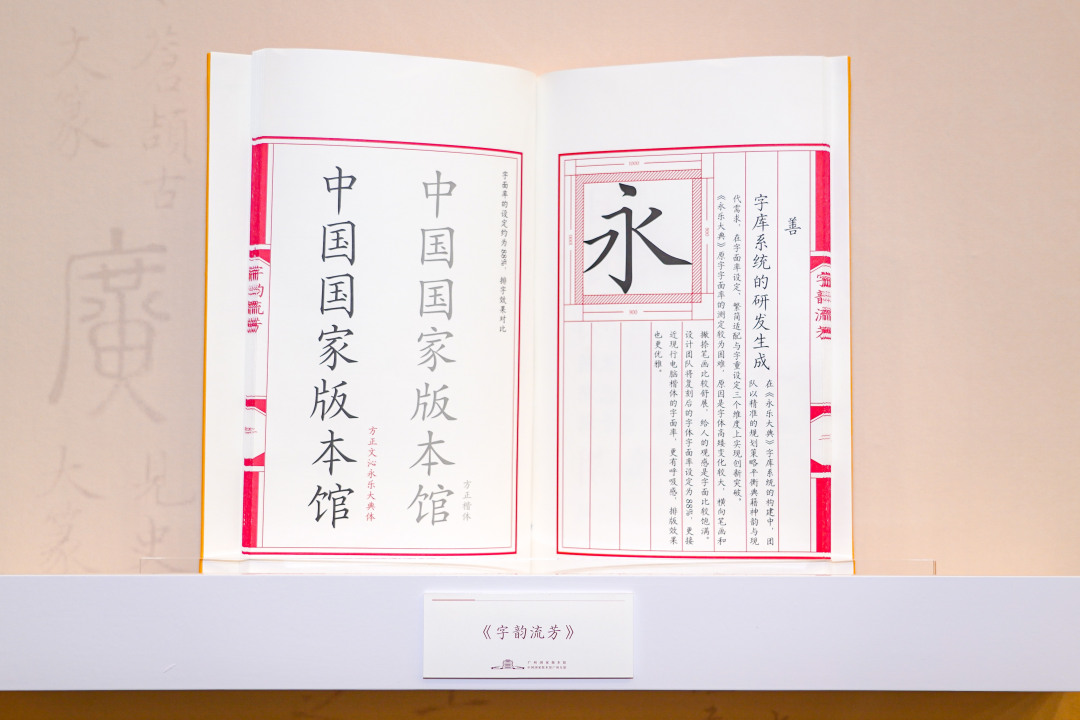 字韵流芳
二
善
字库系统的研发生成
在《永乐大典》字库系统的构建中，团
队以精准的规划策略平衡典籍神韵与现
代需求，在字面率设定、繁简适配与字重设定三个维度上实现创新突破。
《永乐大典》原字字面率的测定较为困难，原因是字体高矮变化较大，横向笔画和
撇捺笔画比较舒展，给人的观感是字面比较饱满。
设计团队将复刻后的字体字面率设定为88%，更接
近现行电脑楷体的字面率，更有呼吸感，排版效果
也更优雅。
1000
永
字面率的设定约为88%，排字效果对比
中国国家版本馆
方正楷体
中国国家版本馆
方正文沁永乐大典体
字韵流芳
大家
颉古
廣
《字韵流芳》